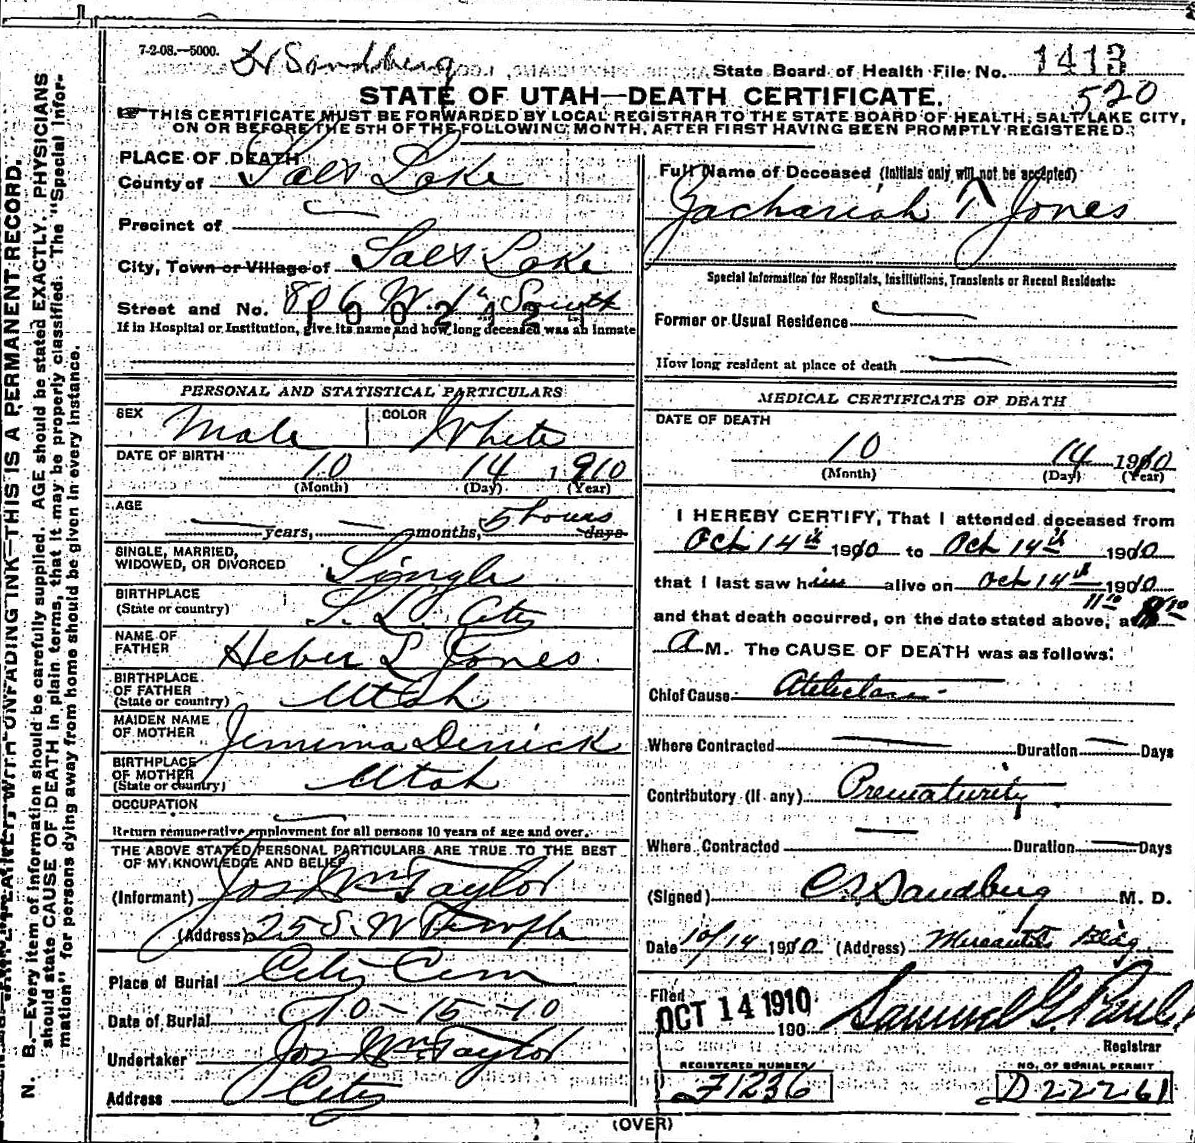 7-2-08.—5000.
Dr Sandberg
State Board of Health File No. 1413
520
STATE OF UTAH—DEATH CERTIFICATE.
THIS CERTIFICATE MUST BE FORWARDED BY LOCAL REGISTRAR TO THE STATE BOARD OF HEALTH, SALT LAKE CITY,
ON OR BEFORE THE 5TH OF THE FOLLOWING MONTH, AFTER FIRST HAVING BEEN PROMPTLY REGISTERED.
PLACE OF DEATH
County of Salt Lake
Precinct of
City, Town or Village of Salt Lake
Street and No. 806 W. 1st South
1002121
If in Hospital or Institution, give its name and how long deceased was an inmate
PERSONAL AND STATISTICAL PARTICULARS
SEX Male COLOR White
DATE OF BIRTH
10 14 1910
(Month) (Day) (Year)
AGE
— years, — months, 5 hours days
SINGLE, MARRIED,
WIDOWED, OR DIVORCED Single
BIRTHPLACE
(State or country) S. L. City
NAME OF
FATHER Heber L Jones
BIRTHPLACE
OF FATHER
(State or country) Utah
MAIDEN NAME
OF MOTHER Jemima Derrick
BIRTHPLACE
OF MOTHER
(State or country) Utah
OCCUPATION
Return remunerative employment for all persons 10 years of age and over.
THE ABOVE STATED PERSONAL PARTICULARS ARE TRUE TO THE BEST
OF MY KNOWLEDGE AND BELIEF
(Informant) Jos Wm Taylor
(Address) 25 S. W Temple
Place of Burial City Cem
Date of Burial 10-15-10
Undertaker Jos Wm Taylor
Address City
Full Name of Deceased (Initials only will not be accepted)
Zachariah T Jones
Special Information for Hospitals, Institutions, Transients or Recent Residents:
Former or Usual Residence —
How long resident at place of death —
MEDICAL CERTIFICATE OF DEATH
DATE OF DEATH
10 14 1910
(Month) (Day) (Year)
I HEREBY CERTIFY, That I attended deceased from
Oct 14th 1910 to Oct 14th 1910
that I last saw him alive on Oct 14th 1910
and that death occurred, on the date stated above, at 11 10
A M. The CAUSE OF DEATH was as follows:
Chief Cause
Where Contracted — Duration — Days
Contributory (If any) Prematurity
Where Contracted — Duration — Days
(Signed) C. L. Sandberg M. D.
Date 10/14 1910 (Address) Mercantile Bldg.
Filed OCT 14 1910
190
Samuel G. Paul
Registrar
REGISTERED NUMBER
J1236
NO. OF BURIAL PERMIT
D22261
(OVER)
N. B.—Every item of information should be carefully supplied. AGE should be stated EXACTLY. PHYSICIANS
should state CAUSE OF DEATH in plain terms, that it may be properly classified. The "Special Infor-
mation" for persons dying away from home should be given in every instance.
WITH UNFADING INK—THIS IS A PERMANENT RECORD.